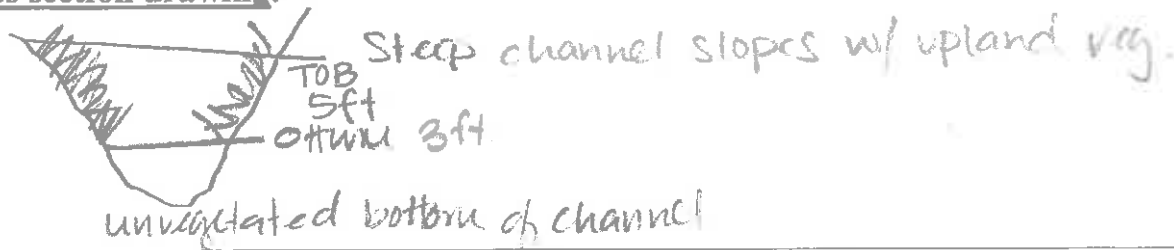 section drawing:
Steep channel slopes w/ upland veg.
TOB
5ft
OHWM 3ft
unvegetated bottom of channel